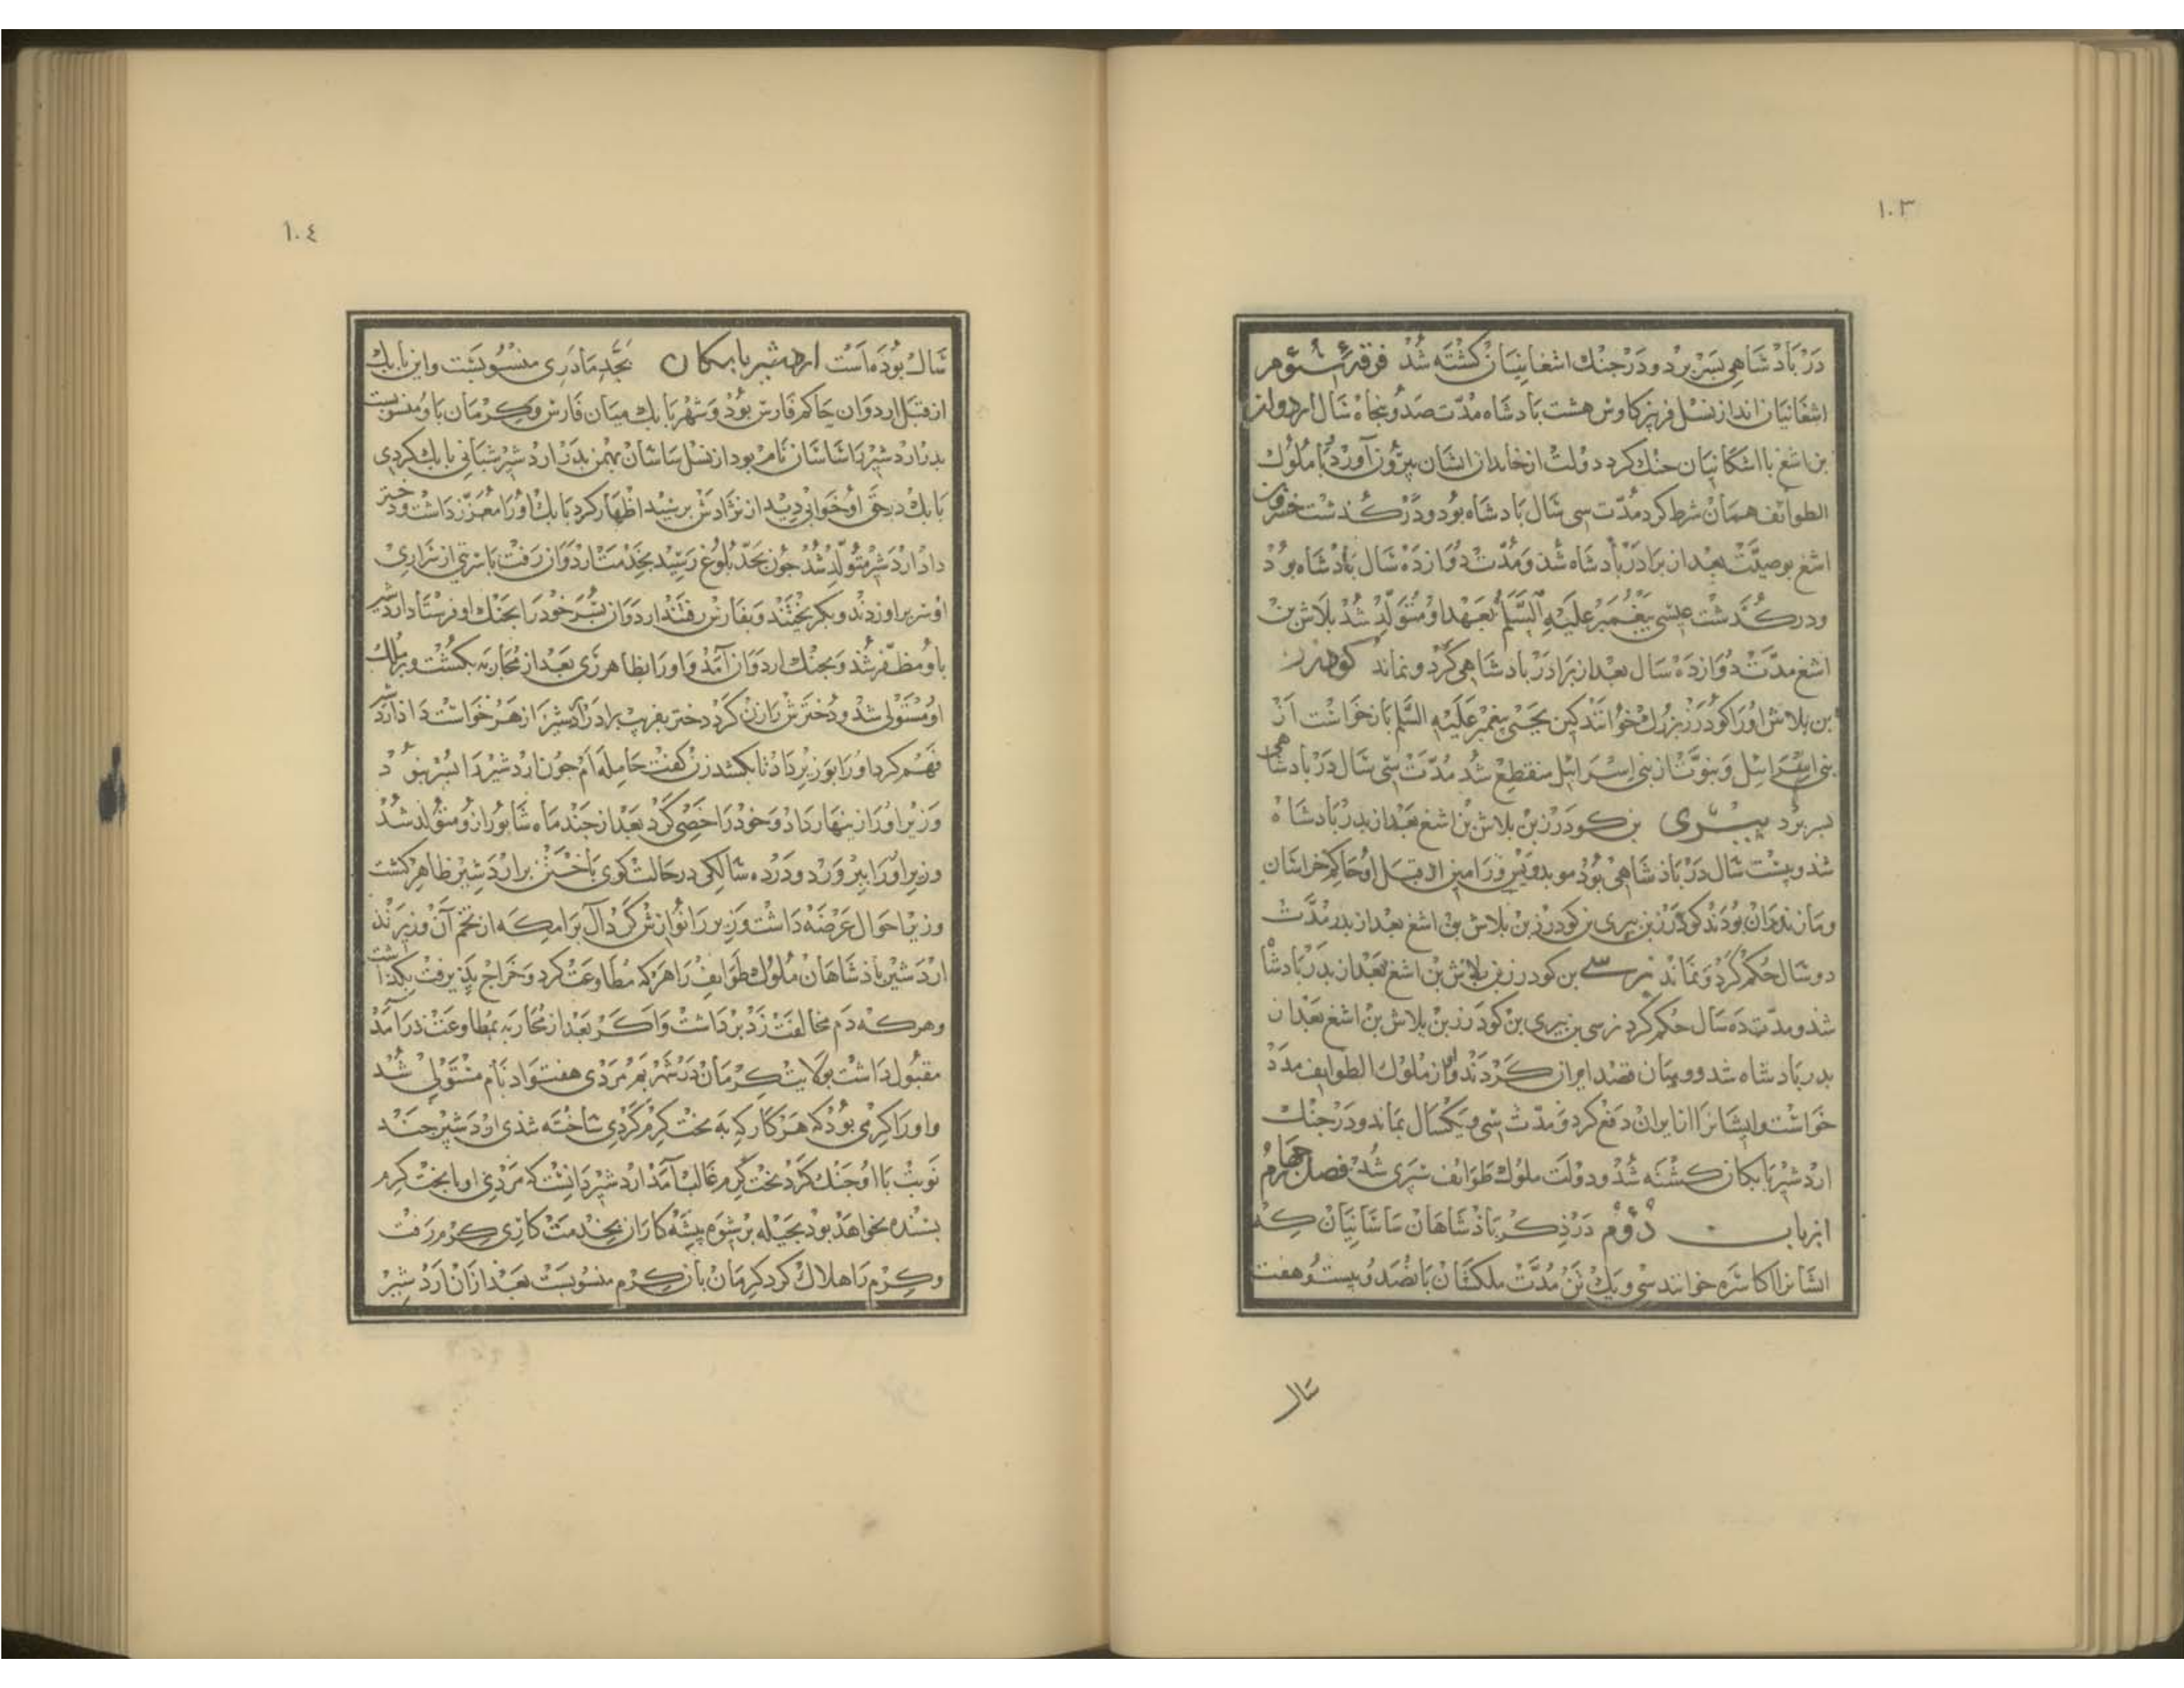 ١٠٣
در بادشاهی بسر برد و در جنك اشغانیان كشته شد فرقهٔ سئوم
اشغانیان اند از نسل فریبرز كاوس هشت بادشاه مدّت صد و بنجاه سال اردوان
بن اشغ با اشكانیان جنك كرد دولت از خاندان ایشان بیرون آورد با ملوك
الطوائف همان شرط كرد مدّت سی سال بادشاه بود و درگذشت خسرو بن
اشغ بوصیّت بعد از برادر بادشاه شد و مدّت دوازده سال بادشاه بود
و درگذشت عیسی بیغمبر علیه السّلم بعهد او متولّد شد بلاش بن
اشغ مدّت دوازده سال بعد از برادر بادشاهی كرد و نماند كودرز
بن بلاش اورا كودرز بزرك خوانند كین یحیی بیغمبر علیه السّلم باز خواست از
بنی اسرائیل و نبوّت از بنی اسرائیل منقطع شد مدّت سی سال در بادشاهی
بسر برد بیری بن كودرز بن بلاش بن اشغ بعد از بدر بادشاه
شد و بیست سال در بادشاهی بود موبد ویس و رامین از قبل او حاكم خراسان
و مازندران بودند كودرز بن بیری بن كودرز بن بلاش بن اشغ بعد از بدر مدّت
دو سال حكم كرد و نماند نرسی بن كودرز بن بلاش بن اشغ بعد از بدر بادشاه
شد و مدّت ده سال حكم كرد نرسی بن بیری بن كودرز بن بلاش بن اشغ بعد از
بدر بادشاه شد و رومیان قصد ایران كردند او از ملوك الطوایف مدد
خواست و ایشانرا از ایران دفع كرد و مدّت سی و یكسال بماند و در جنك
اردشیر بابكان كشته شد و دولت ملوك طوائف سبری شد فصل جهارم
از باب دوم در ذكر بادشاهان ساسانیان كه
ایشانرا اكاسره خوانند سی و یك تن مدّت ملكشان بانصد و بیست و هفت
سال
١٠٤
سال بوده است اردشیر بابكان بجد مادری منسوبست و این بابك
از قبل اردوان حاكم فارس بود و شهر بابك میان فارس و كرمان باو منسوبست
بدر اردشیر را ساسان نام بود از نسل ساسان بهمن بدر اردشیر شبانی بابك كردی
بابك در حق او خوابی دید از نژادش برسید اظهار كرد بابك اورا معزّز داشت و دختر
داد اردشیر متولّد شد جون بحدّ بلوغ رسید بخدمت اردوان رفت با سرتی از سراری
او سر براوردند و بكریختند و بفارس رفتند اردوان بسر خودرا بجنك او فرستاد اردشیر
باو مظفّر شد و بجنك اردوان آمد و اورا بظاهر ری بعد از محاربه بكشت و بر ملك
او مستولی شد و دخترش را زن كرد دختر بفریب برادر اردشیر را زهر خواست داد اردشیر
فهم كرد اورا بوزیر داد تا بكشد زن كفت حامله ام جون اردشیر را بسر نبود
وزیر اورا زینهار داد و خود را خصی كرد بعد از جند ماه شابور ازو متولد شد
وزیر اورا ببرورد و در ده سالكی در حالت كوی باختن بر اردشیر ظاهر كشت
وزیر احوال عرضه داشت وزیر را نوازش كرد آل برامكه از تخم آن وزیرند
اردشیر بادشاهان ملوك طوایف را هركه مطاوعت كرد و خراج بذیرفت بكذاشت
و هركه دم مخالفت زد برداشت و اكر بعد از محاربه بمطاوعت درآمد
مقبول داشت بولایت كرمان در شهر بم مردی هفتواد نام مستولی شد
و اورا كرمی بود كه هر كار كه به بخت كرم كردی ساخته شدی اردشیر جند
نوبت با او جنك كرد بخت كرم غالب آمد اردشیر دانست كه مردی او با بخت كرم
بسنده نخواهد بود بحیله بر شیوه بیشه كاران بخدمت كاری كرم رفت
و كرم را هلاك كرد كرمان بآن كرم منسوبست بعد از آن اردشیر